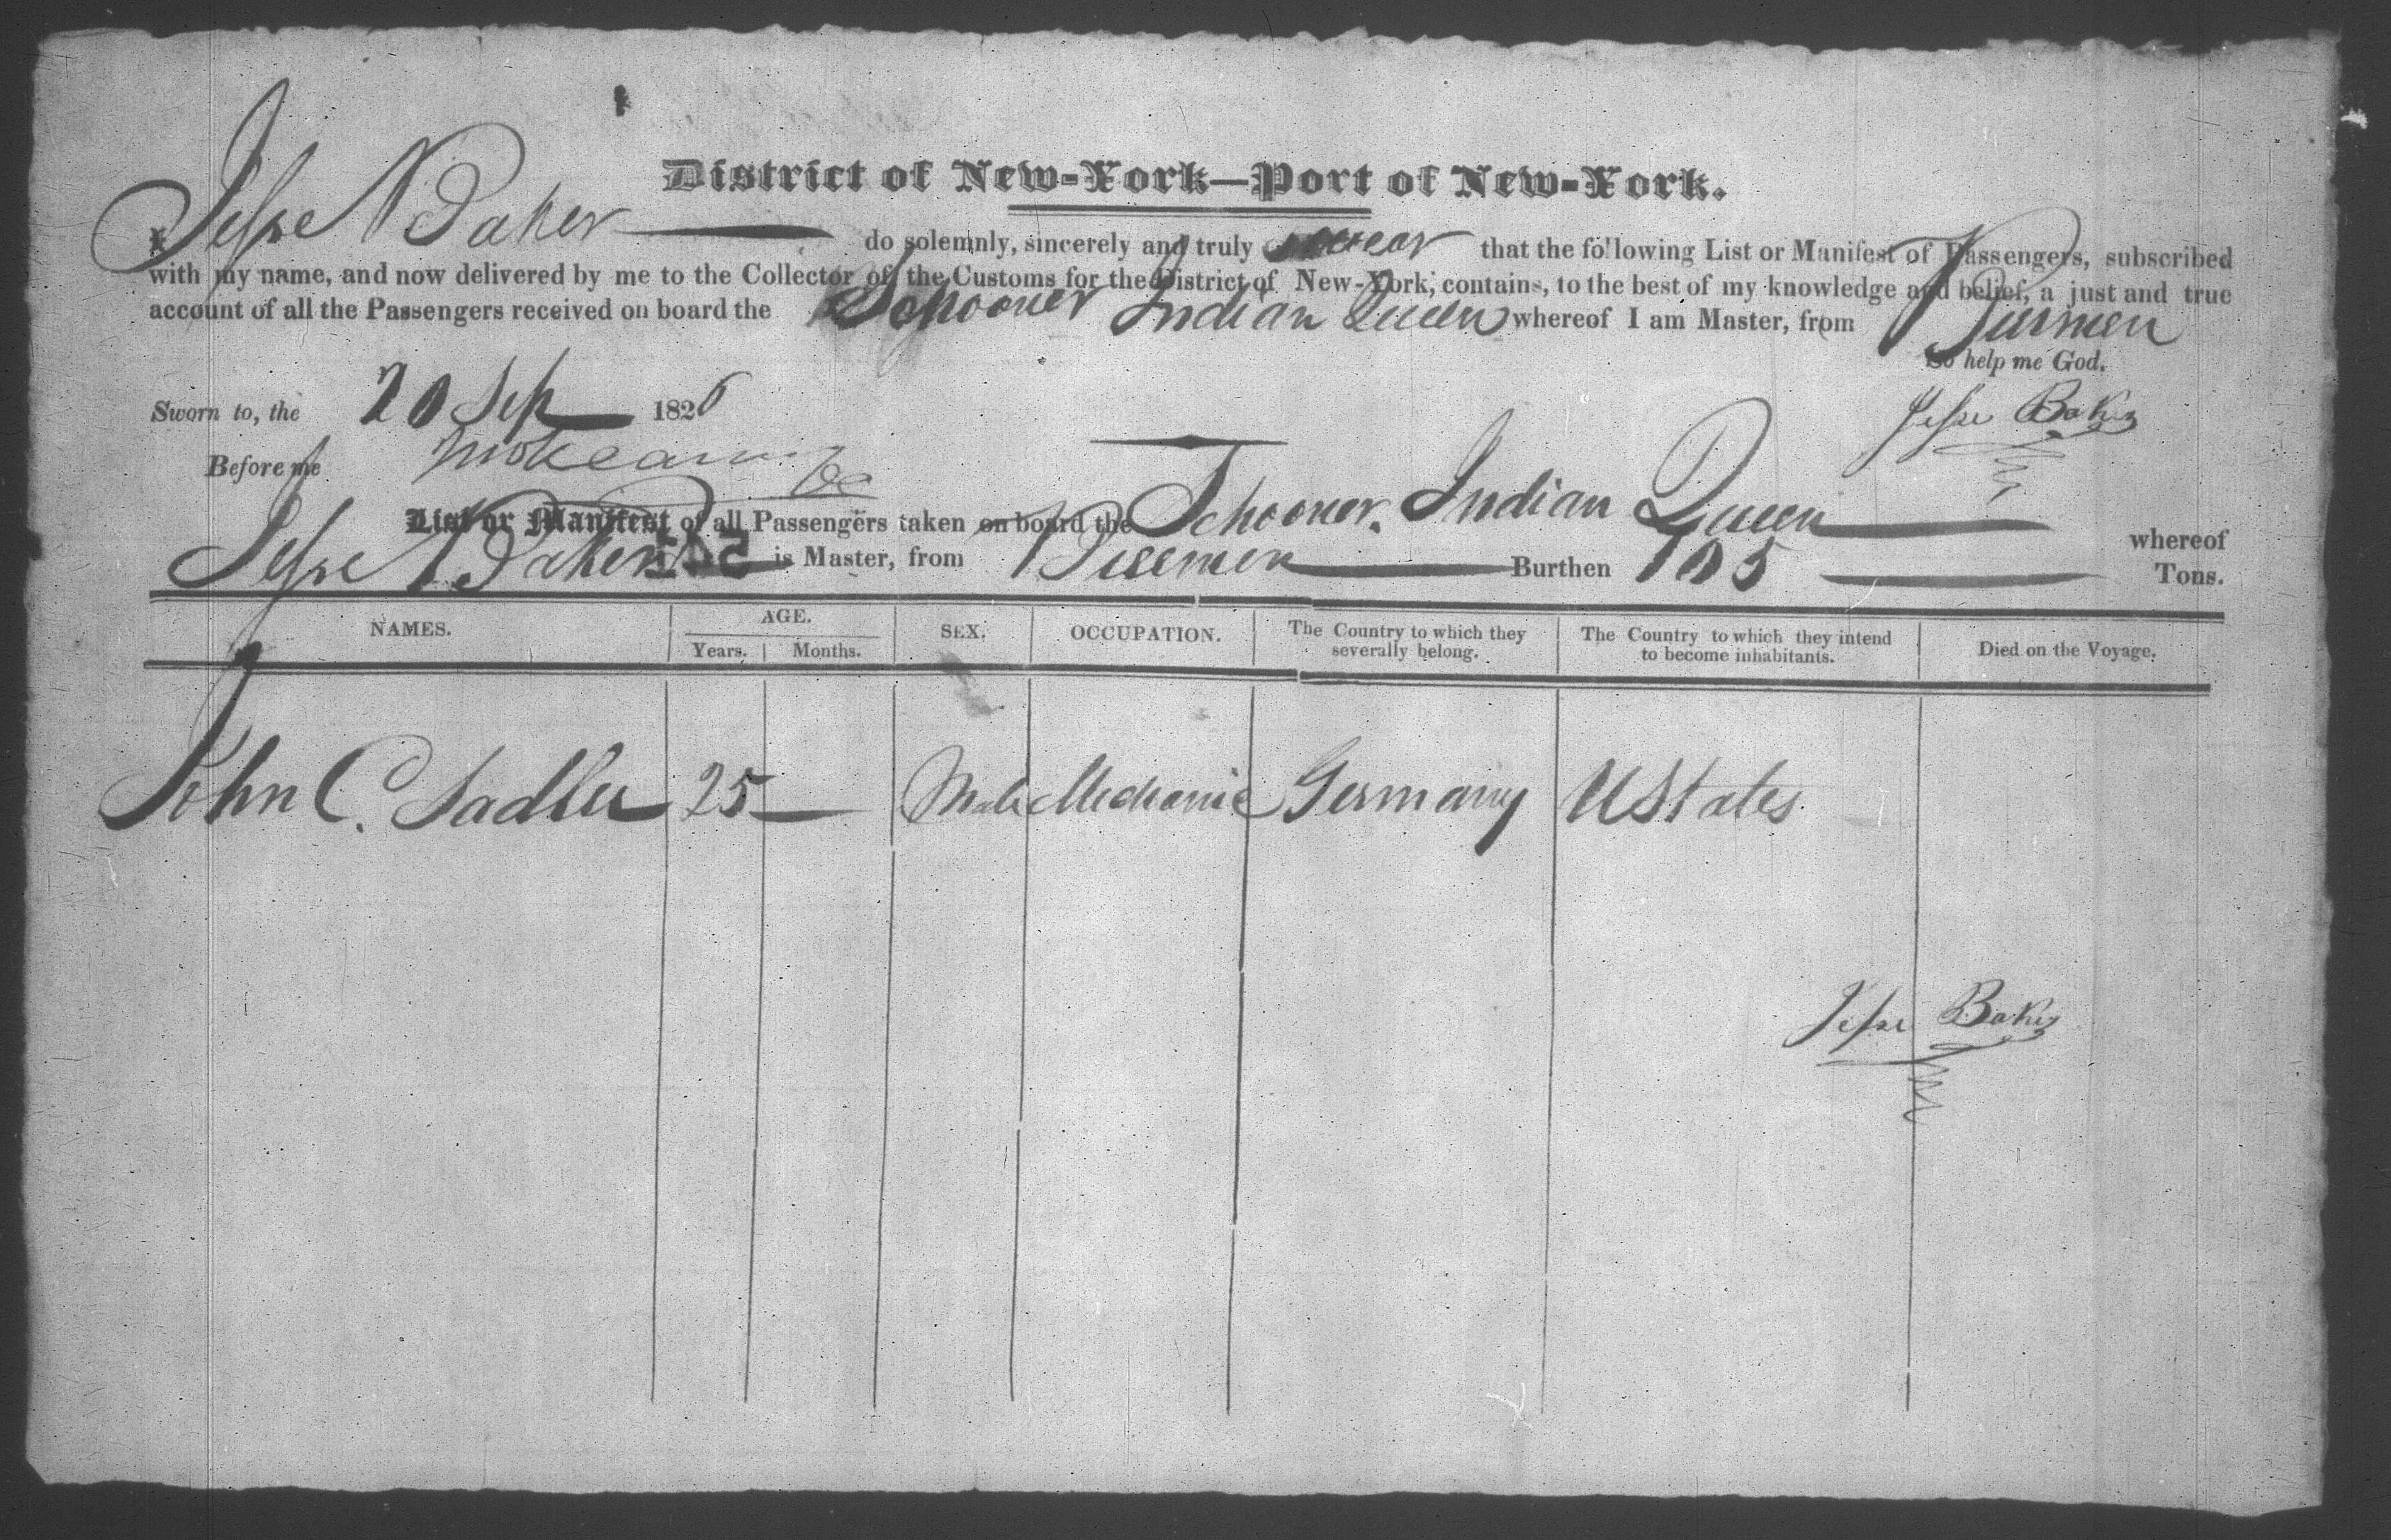 District of New-York—Port of New-York.
I, Jesse Baker do solemnly, sincerely and truly swear that the following List or Manifest of Passengers, subscribed
with my name, and now delivered by me to the Collector of the Customs for the District of New-York, contains, to the best of my knowledge and belief, a just and true
account of all the Passengers received on board the Schooner Indian Queen whereof I am Master, from Bremen
So help me God.
Sworn to, the 20 Sep 1826
Jesse Baker
Before me
List or Manifest of all Passengers taken on board the Schooner Indian Queen whereof
Jesse Baker is Master, from Bremen Burthen 105 Tons.
542
NAMES. AGE. Years. Months. SEX. OCCUPATION. The Country to which they severally belong. The Country to which they intend to become inhabitants. Died on the Voyage.
John C. Sadler 25 — Male Mechanic Germany UStates
Jesse Baker